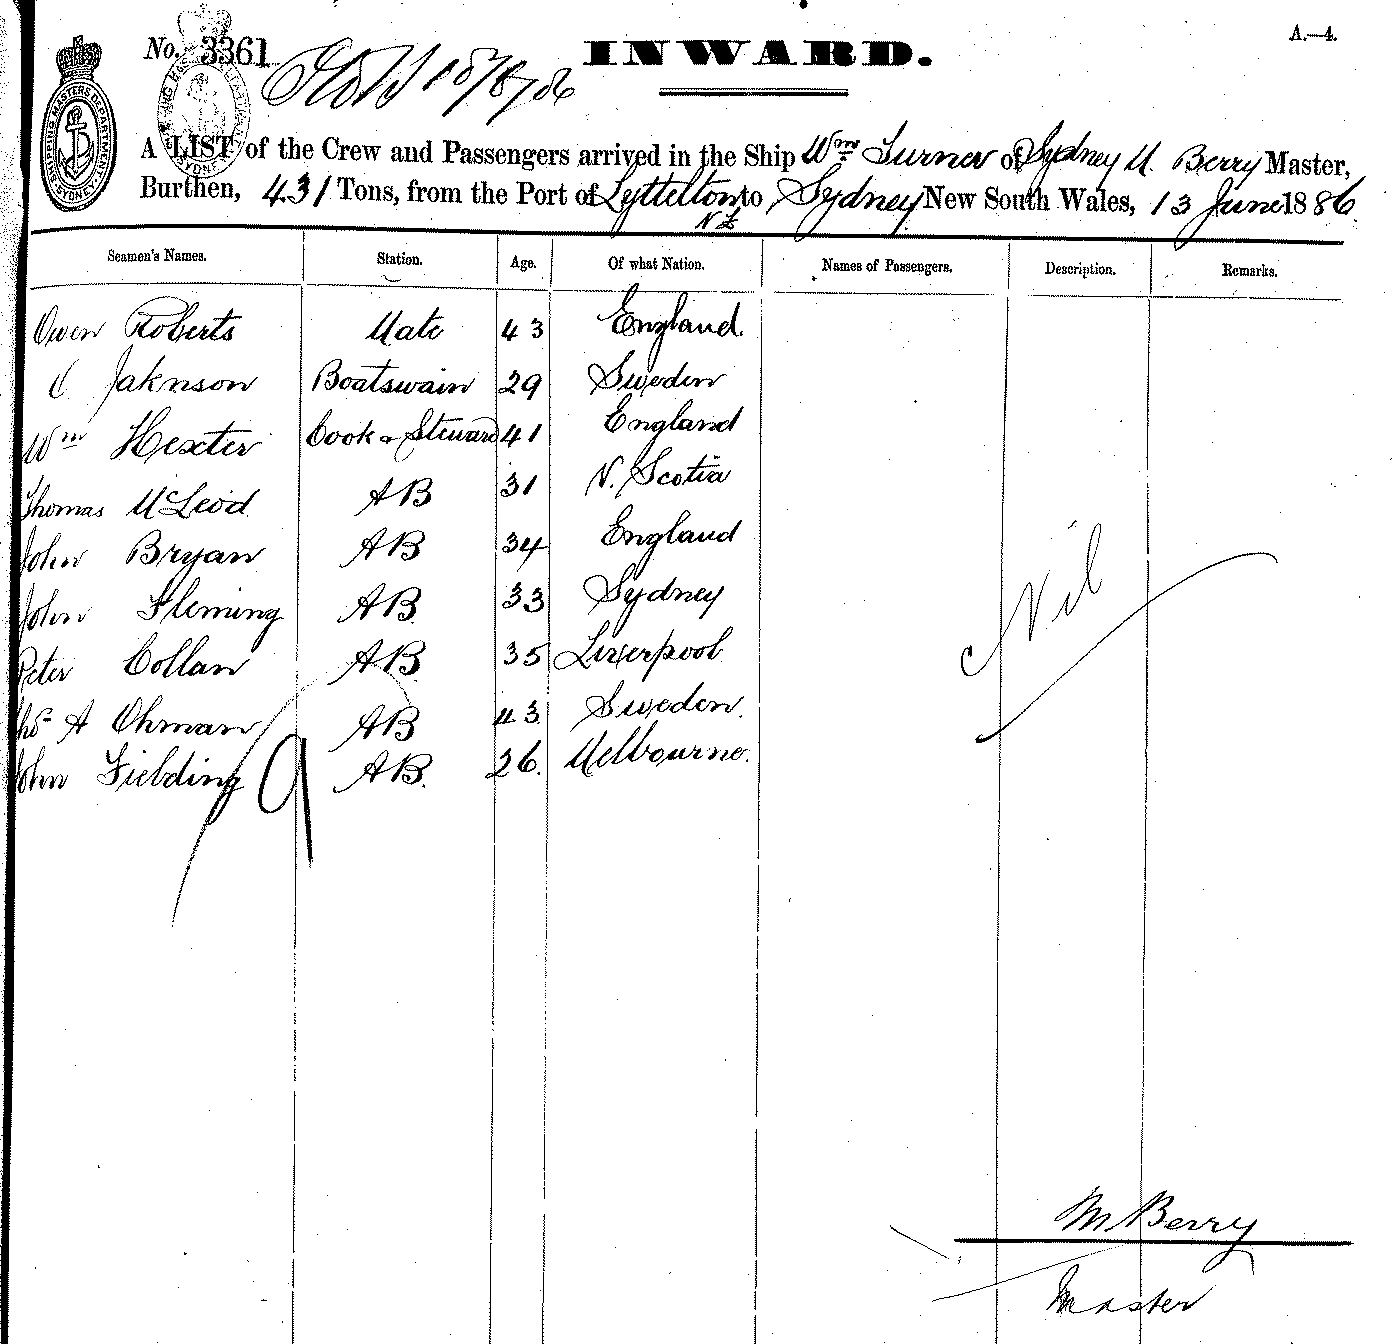 No. 3361
INWARD.
A.—4.
A LIST of the Crew and Passengers arrived in the Ship Wm Turner of Sydney M. Berry Master,
Burthen, 431 Tons, from the Port of Lyttelton to Sydney New South Wales, 13 June 1886.
NZ
Seamen's Names. Station. Age. Of what Nation. Names of Passengers. Description. Remarks.
Owen Roberts Mate 43 England.
Jaknson Boatswain 29 Sweden
Wm Hexter Cook & Steward 41 England
Thomas McLeod AB 31 N. Scotia
John Bryan AB 34 England
John Fleming AB 33 Sydney
Peter Collan AB 35 Liverpool
A Ohman AB 43 Sweden.
John Fielding AB. 26. Melbourne.
9
Nil
M Berry
Master